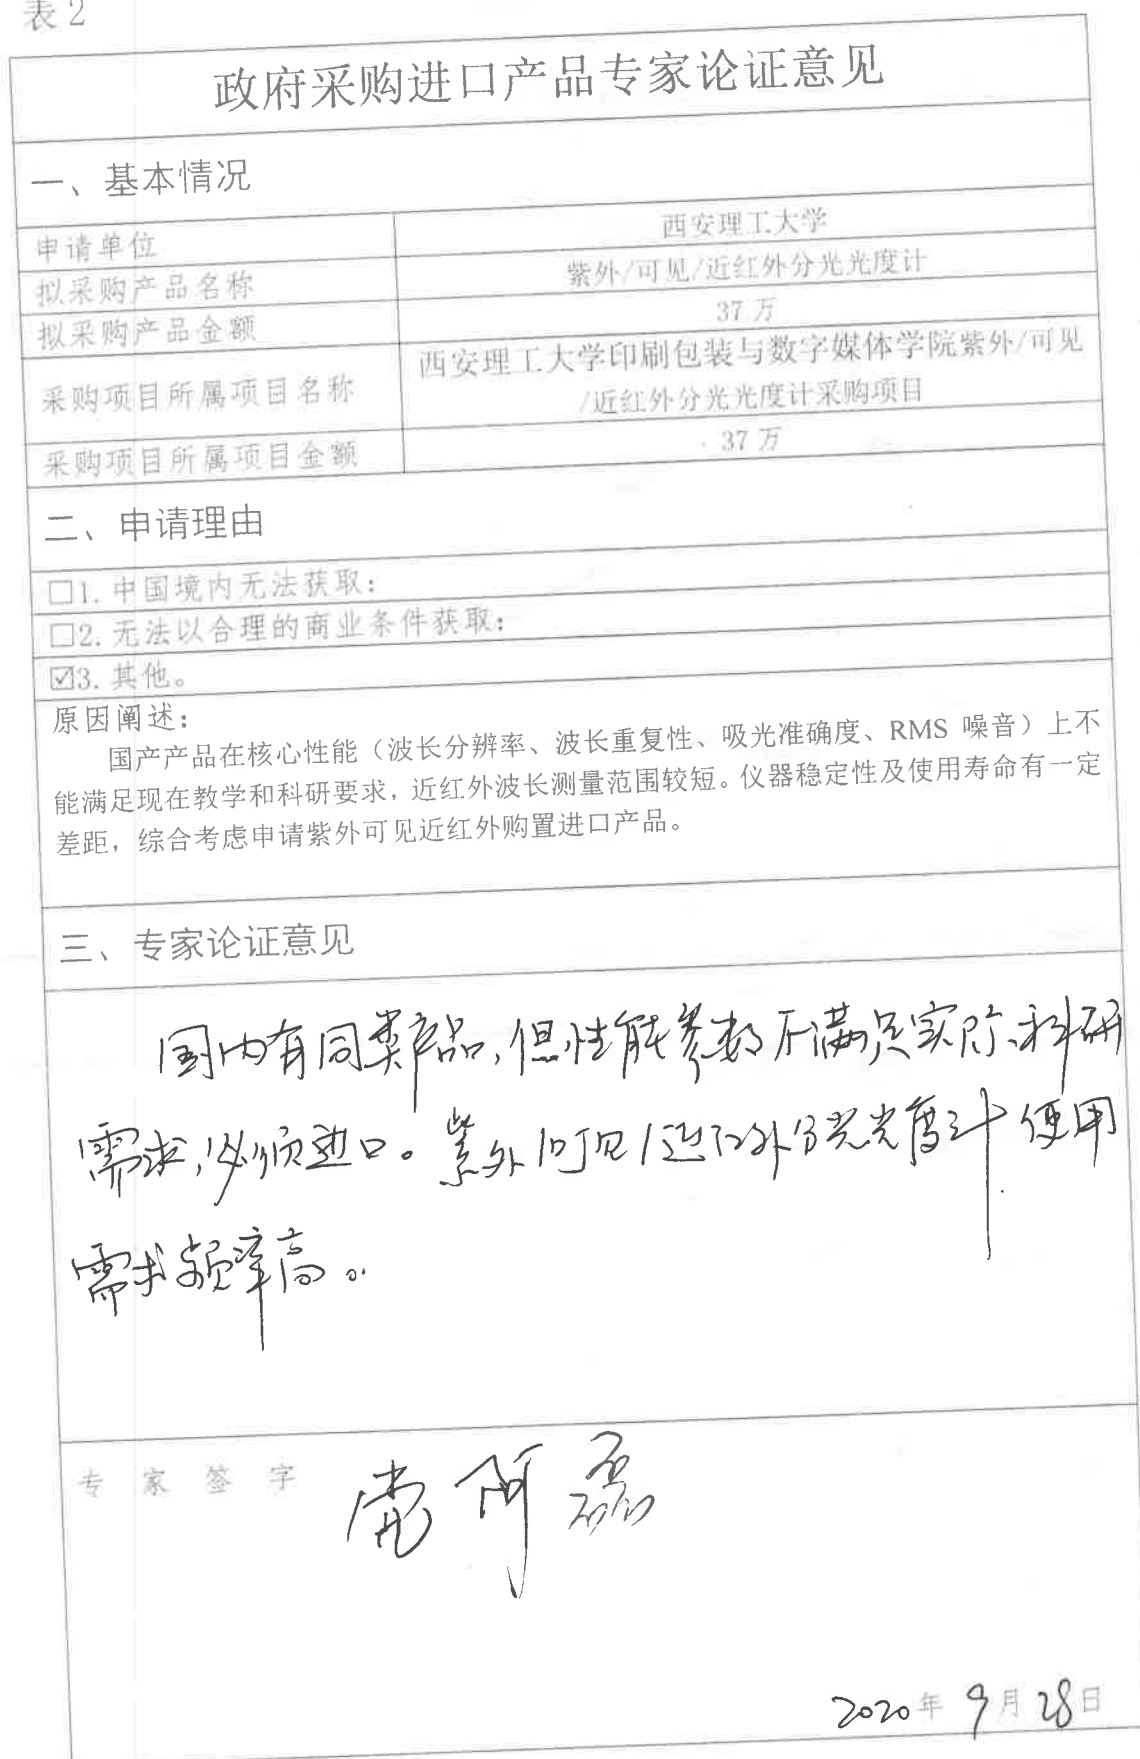 表2
政府采购进口产品专家论证意见
一、基本情况
申请单位 西安理工大学
拟采购产品名称 紫外/可见/近红外分光光度计
拟采购产品金额 37万
采购项目所属项目名称 西安理工大学印刷包装与数字媒体学院紫外/可见
/近红外分光光度计采购项目
采购项目所属项目金额 37万
二、申请理由
☐1. 中国境内无法获取：
☐2. 无法以合理的商业条件获取：
☑3. 其他。
原因阐述：
国产产品在核心性能（波长分辨率、波长重复性、吸光准确度、RMS 噪音）上不
能满足现在教学和科研要求，近红外波长测量范围较短。仪器稳定性及使用寿命有一定
差距，综合考虑申请紫外可见近红外购置进口产品。
三、专家论证意见
国内有同类产品，但性能参数不满足实际科研
需求，必须进口。紫外/可见/近红外分光光度计使用
需求频率高。
专家签字 党阿磊
2020年9月28日